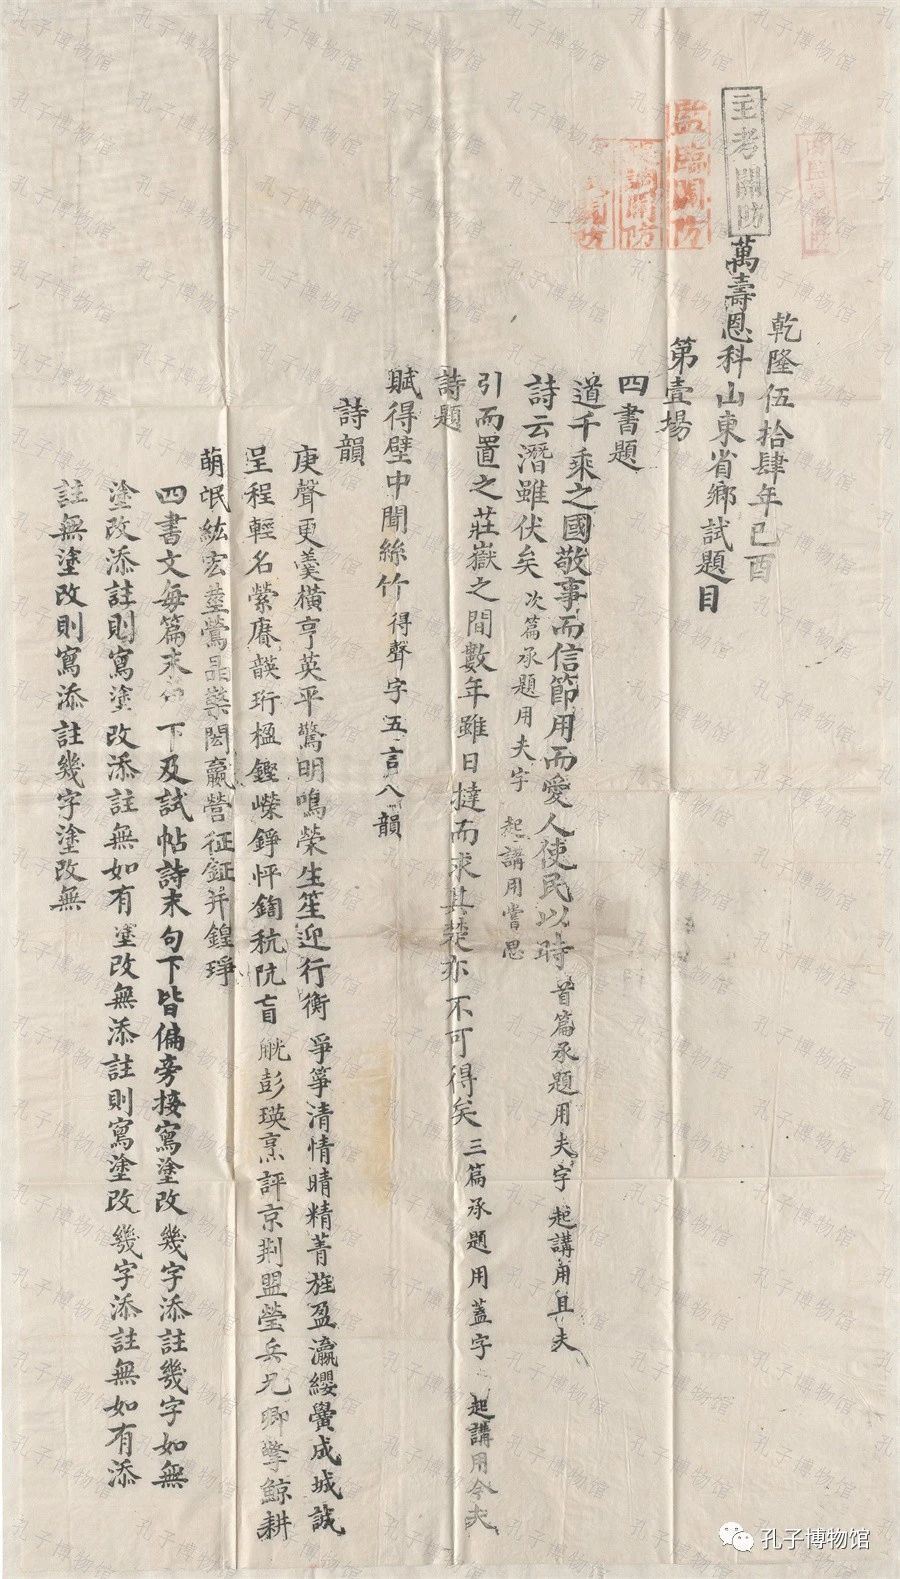 乾隆伍拾肆年己酉
主考關防
萬壽恩科山東省鄉試題目
監臨關防
關防
第壹場
四書題
道千乘之國敬事而信節用而愛人使民以時 首篇承題用夫字 起講用且夫
詩云潛雖伏矣 次篇承題用夫字 起講用嘗思
引而置之莊嶽之間數年雖日撻而求其楚亦不可得矣 三篇承題用蓋字 起講用今夫
詩題
賦得壁中聞絲竹 得聲字五言八韻
詩韻
庚聲更羹橫亨英平驚明鳴榮生笙迎行衡爭箏清情晴精菁旌盈瀛纓黌成城誠
呈程輕名縈賡韺珩楹鏗嶸錚怦鍧秔阬盲觥彭瑛烹評京荆盟瑩兵兄卿擎鯨耕
萌氓紘宏莖鶯晶檠閎嬴營征鉦并鍠琤
四書文每篇末 下及試帖詩末句下皆偏旁接寫塗改幾字添註幾字如無
塗改添註則寫塗改添註無如有塗改無添註則寫塗改幾字添註無如有添
註無塗改則寫添註幾字塗改無
孔子博物馆